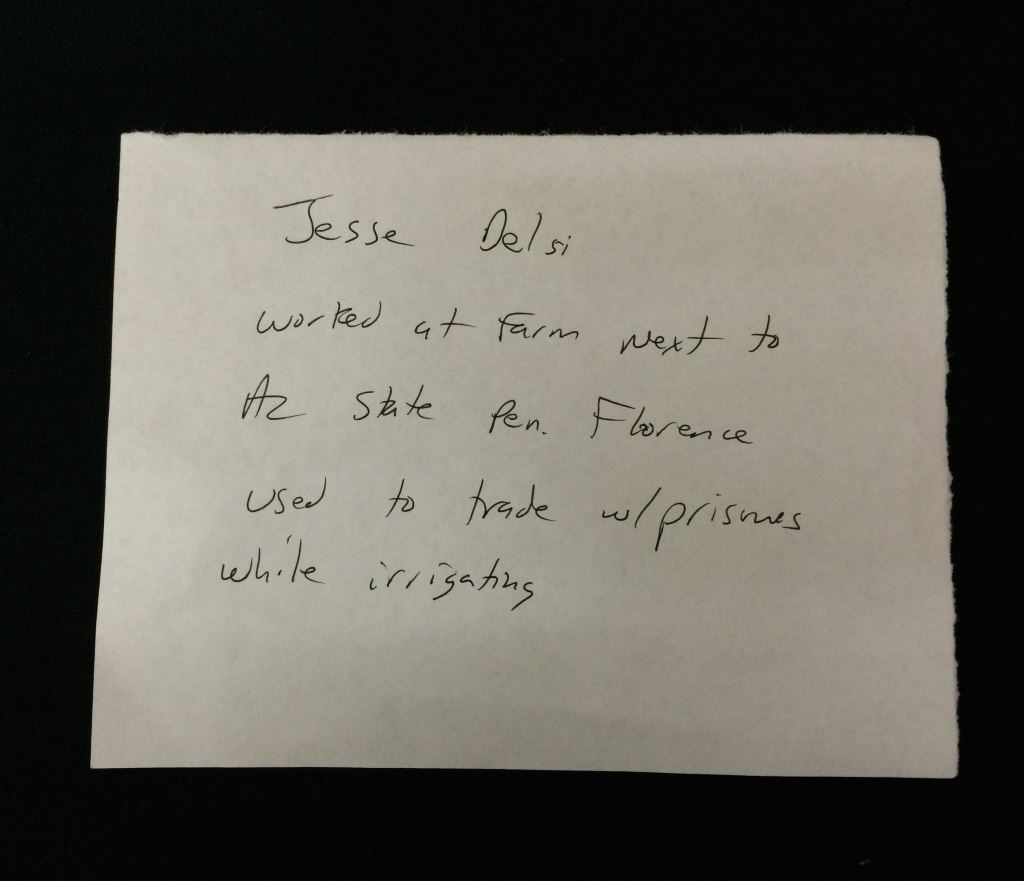 Jesse Delsi
worked at Farm Next to
AZ State Pen. Florence
used to trade w/prisones
while irrigating